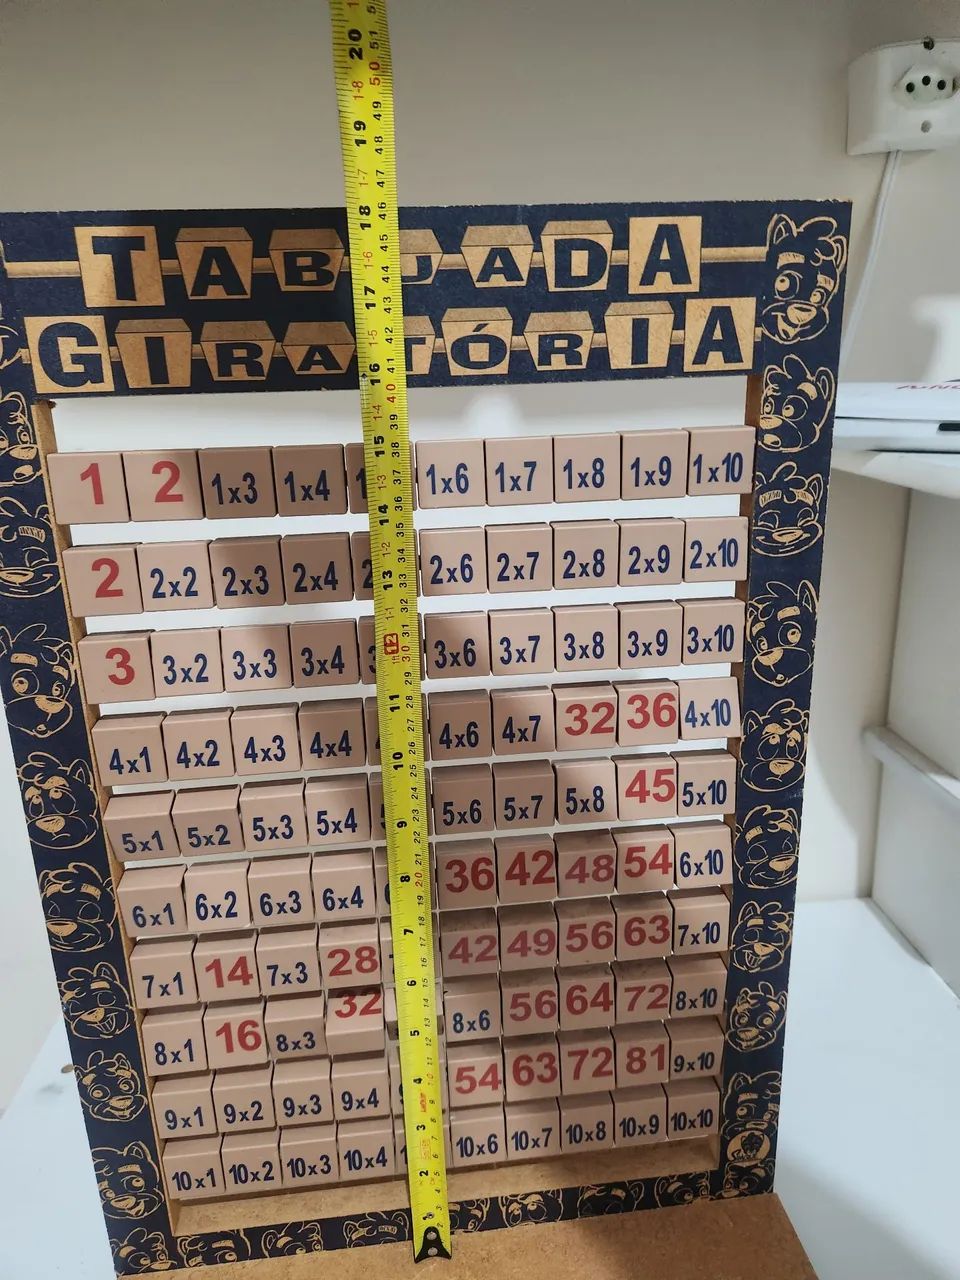 TAB JADA
GIRATÓRIA
1 2 1x3 1x4 1 1x6 1x7 1x8 1x9 1x10
2 2x2 2x3 2x4 2 2x6 2x7 2x8 2x9 2x10
3 3x2 3x3 3x4 3 3x6 3x7 3x8 3x9 3x10
4x1 4x2 4x3 4x4 4x6 4x7 32 36 4x10
5x1 5x2 5x3 5x4 5x6 5x7 5x8 45 5x10
6x1 6x2 6x3 6x4 36 42 48 54 6x10
7x1 14 7x3 28 42 49 56 63 7x10
8x1 16 8x3 32 8x6 56 64 72 8x10
9x1 9x2 9x3 9x4 54 63 72 81 9x10
10x1 10x2 10x3 10x4 10x6 10x7 10x8 10x9 10x10
20
19
18
17
16
15
14
13
12
11
10
9
8
7
6
5
4
3
2
1